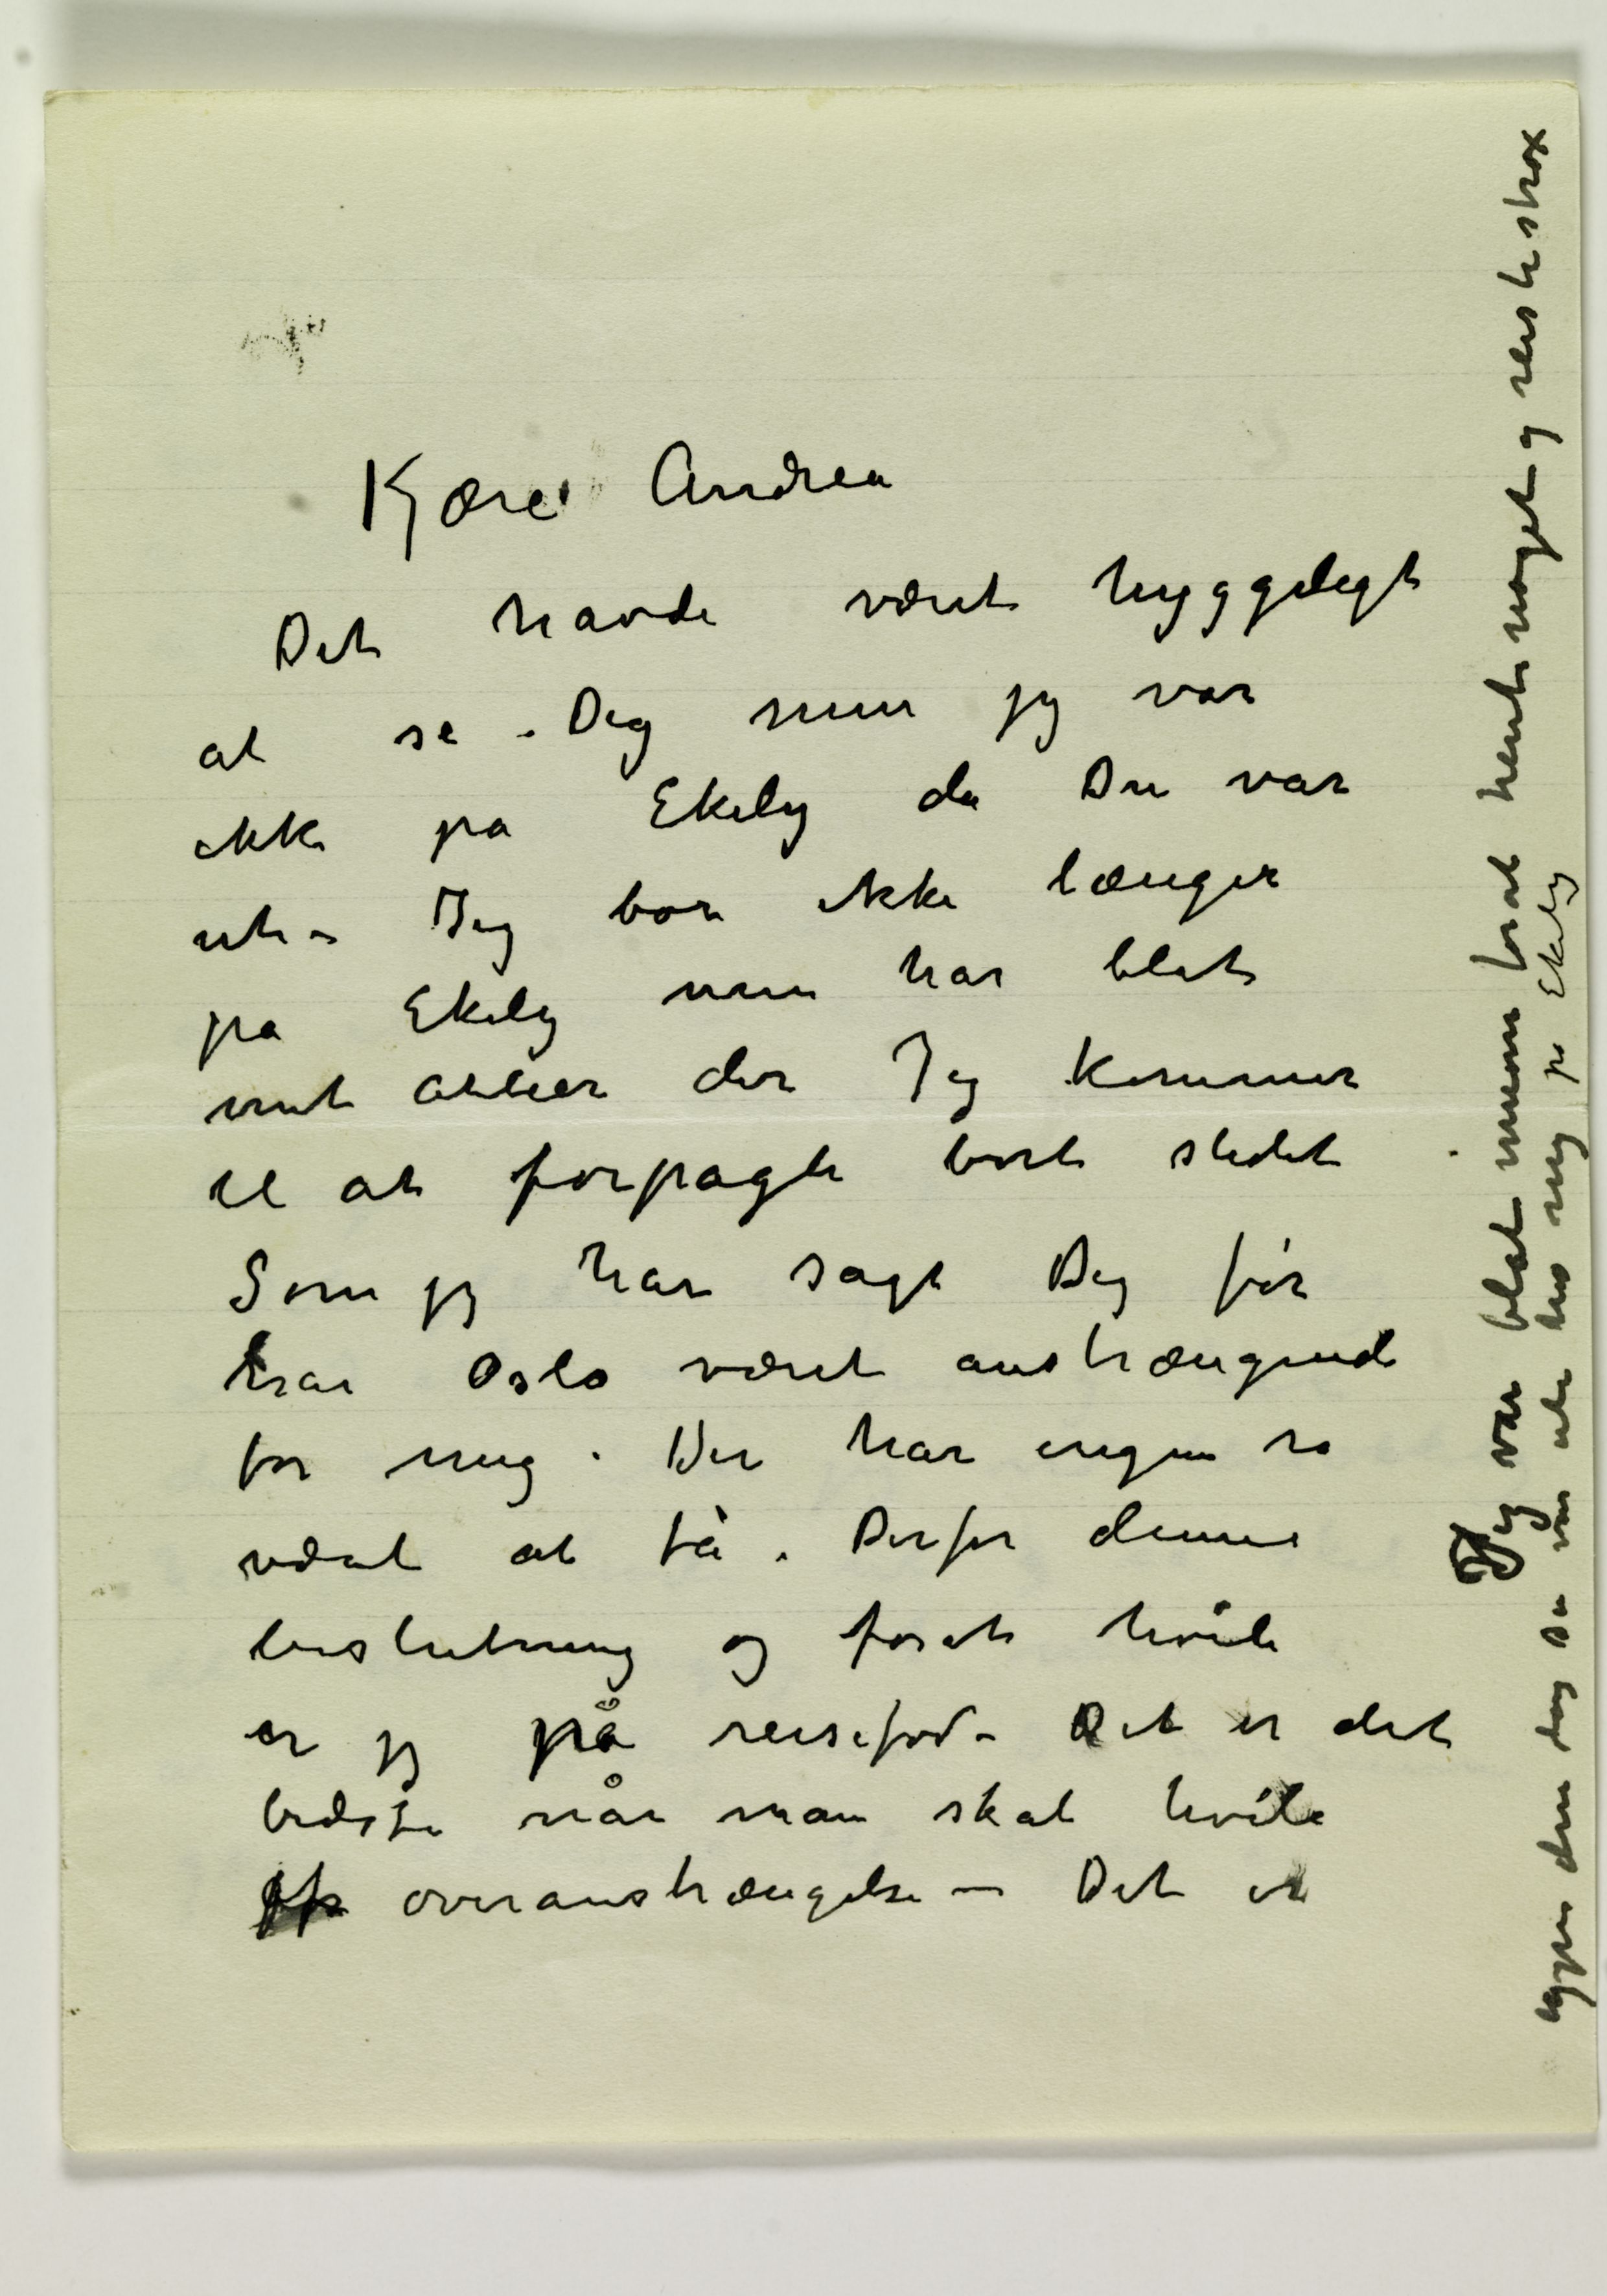 Kjære Andrea
Det havde været hyggeligt
at se Dig men jeg var
ikke på Ekely da Du var
ute – Jeg bor ikke længer
på Ekely men har blot
mit atelier der Jeg kommer
til at forpagte bort stedet
Som jeg har sagt Dig før
har Oslo været anstrængende
for mig . Der har ingen ro
været at få . Derfor denne
beslutning og forat hvile
er jeg på reisefod – Det er det
bedste når man skal hvile
overanstrængelse – Det er
Jeg var blot innom forat hente noget og reiste strax
igjen den dag Du var ute hos mig på Ekely